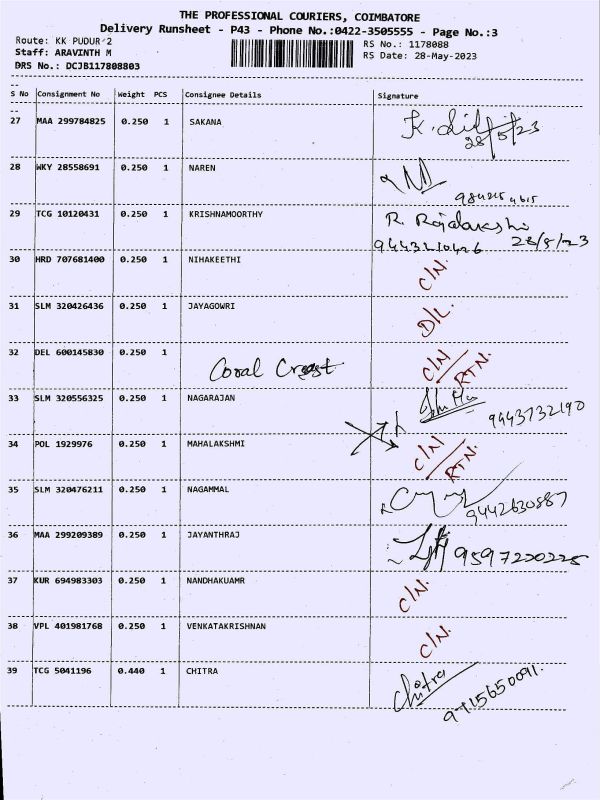 THE PROFESSIONAL COURIERS, COIMBATORE
Delivery Runsheet - P43 - Phone No.:0422-3505555 - Page No.:3
Route: KK PUDUR 2
RS No.: 1178088
Staff: ARAVINTH M
RS Date: 28-May-2023
DRS No.: DCJB117808803
S No Consignment No Weight PCS Consignee Details Signature
27 MAA 299784825 0.250 1 SAKANA 28/5/23
28 WKY 28558691 0.250 1 NAREN
29 TCG 10120431 0.250 1 KRISHNAMOORTHY R. Rajalakshi
9443210426 28/5/23
30 HRD 707681400 0.250 1 NIHAKEETHI C/N.
31 SLM 320426436 0.250 1 JAYAGOWRI D/L.
32 DEL 600145830 0.250 1 Coral Crest C/N/RTN.
33 SLM 320556325 0.250 1 NAGARAJAN 9443732190
34 POL 1929976 0.250 1 MAHALAKSHMI C/N/RTN.
35 SLM 320476211 0.250 1 NAGAMMAL 9442630887
36 MAA 299209389 0.250 1 JAYANTHRAJ 9597220225
37 KUR 694983303 0.250 1 NANDHAKUAMR C/N.
38 VPL 401981768 0.250 1 VENKATAKRISHNAN C/N.
39 TCG 5041196 0.440 1 CHITRA Chitra
9715650091.